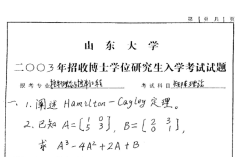 第 1 页 共 1 页
山东大学
二○○3年招收博士学位研究生入学考试试题
报考专业 考试科目 矩阵理论
一、1. 阐述 Hamilton-Cayley 定理。
2. 已知 A=[1 0; 5 3], B=[2 3; 0 1],
求 A³-4A²+2A+B